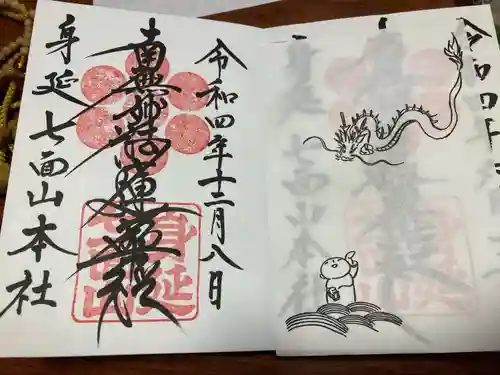 令和四年十二月八日
南無妙法蓮華経
身延七面山本社
身延
七面山
令和四年